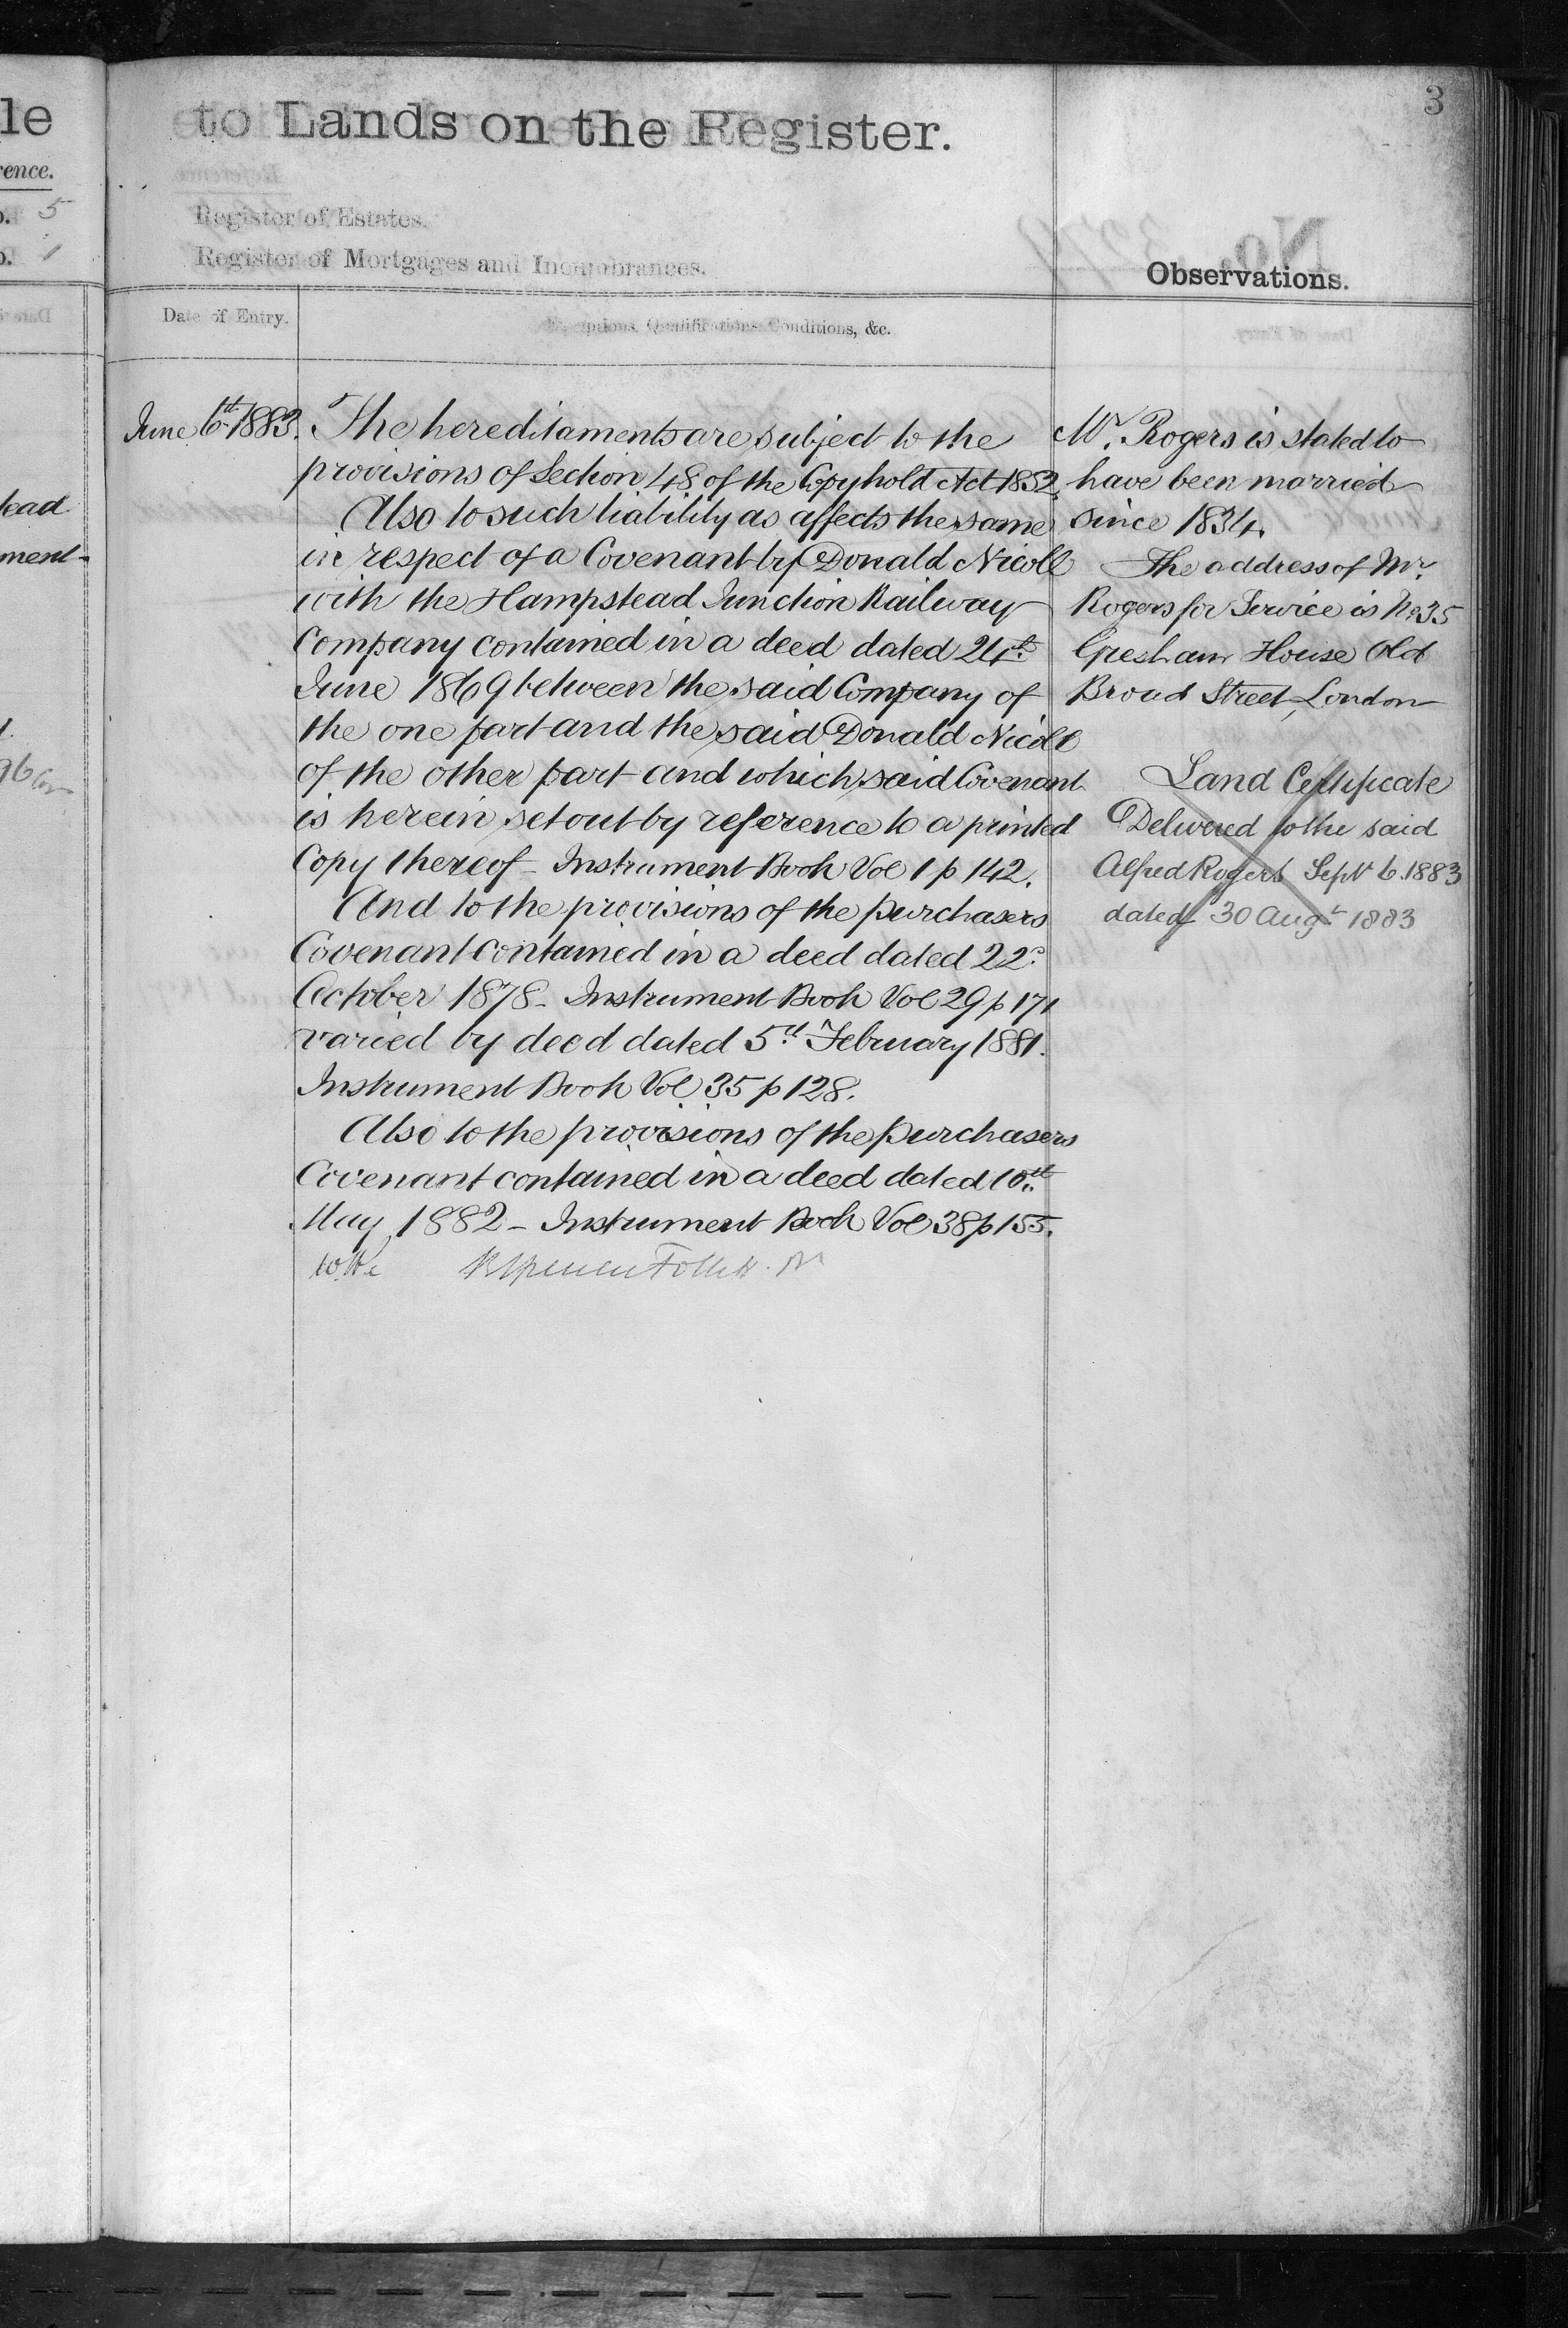 le
to Lands on the Register.
3
rence.
5
1
Register of Estates.
Register of Mortgages and Incumbrances.
Observations.
Date of Entry.
Exceptions, Qualifications, Conditions, &c.
June 6th 1883.
The hereditaments are subject to the
provisions of Section 48 of the Copyhold Act 1852.
Also to such liability as affects the same
in respect of a Covenant by Donald Nicoll
with the Hampstead Junction Railway
Company contained in a deed dated 24th
June 1869 between the said Company of
the one part and the said Donald Nicoll
of the other part and which said Covenant
is herein set out by reference to a printed
Copy thereof - Instrument Book Vol 1 p 142.
And to the provisions of the purchasers
Covenant contained in a deed dated 22d
October 1878 - Instrument Book Vol 29 p 171
varied by deed dated 5th February 1881.
Instrument Book Vol 35 p 128.
Also to the provisions of the purchasers
Covenant contained in a deed dated 10th
May 1882 - Instrument Book Vol 38 p 155.
Follett
Mr. Rogers is stated to
have been married
since 1834.
The address of Mr.
Rogers for Service is No 35
Gresham House Old
Broad Street, London
Land Certificate
Delivered to the said
Alfred Rogers Sept 6. 1883
dated 30 Augt 1883
ment-